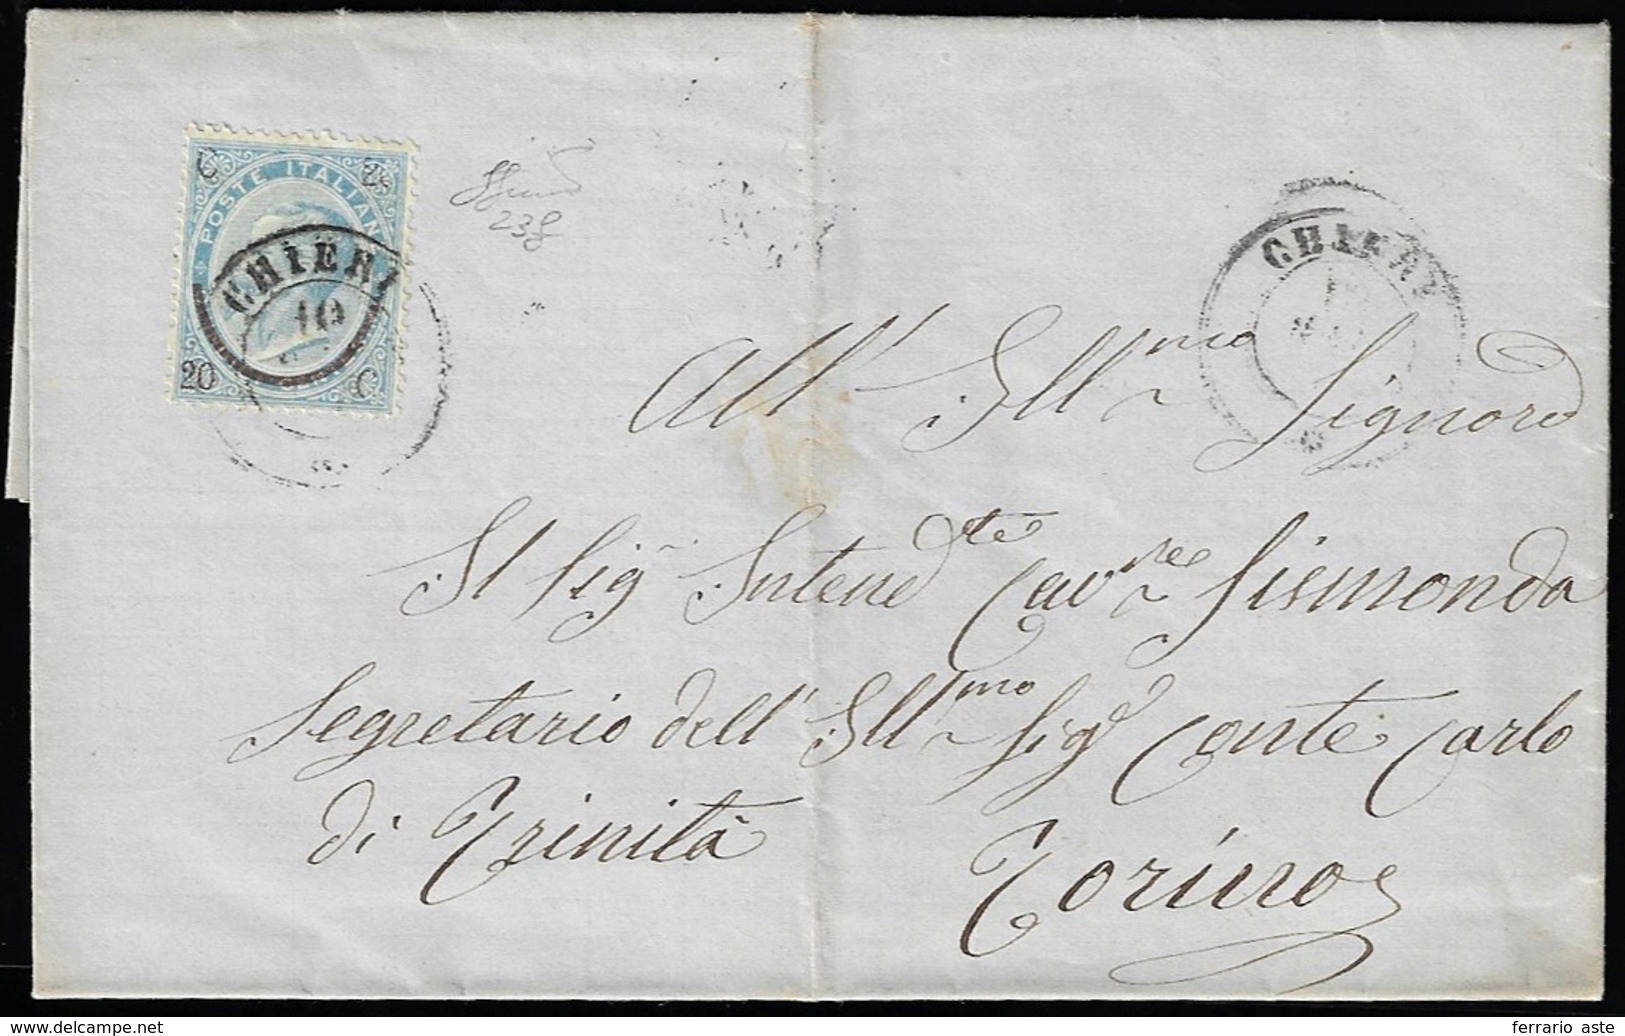 C 20
POSTE ITALIANE
CHIERI
10
20 C
238
CHIERI
All' Ill.mo Signore
Il Sig.r Intend.te Cav.re Sismonda
Segretario dell' Ill.mo Sig.r Conte Carlo
di Trinità
Torino
www.delcampe.net
ferrario aste